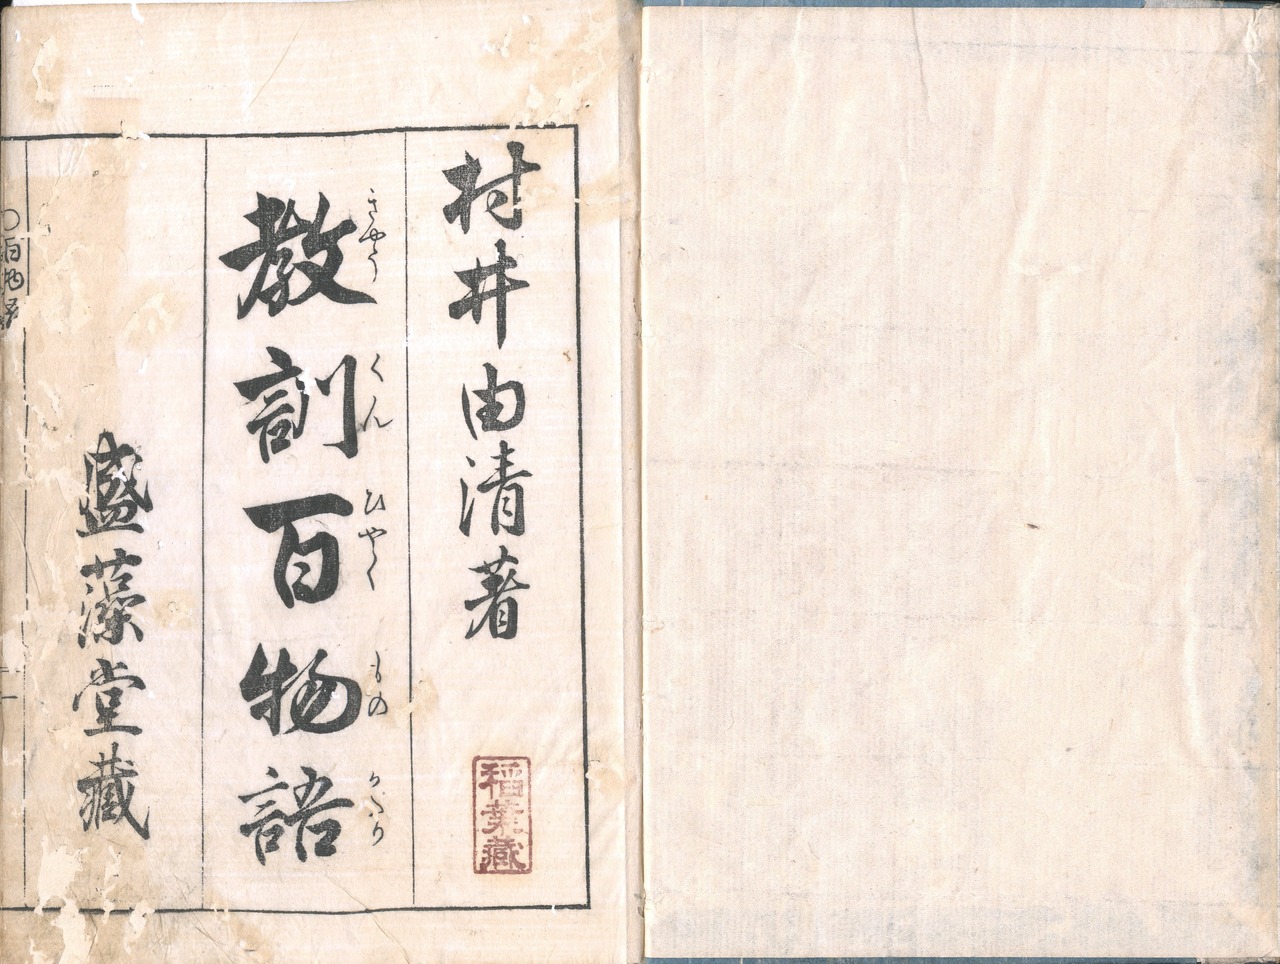 村井由清著
教訓百物語
きやうくんひやくものかたり
盛藻堂藏
稲葉藏
〇百物語